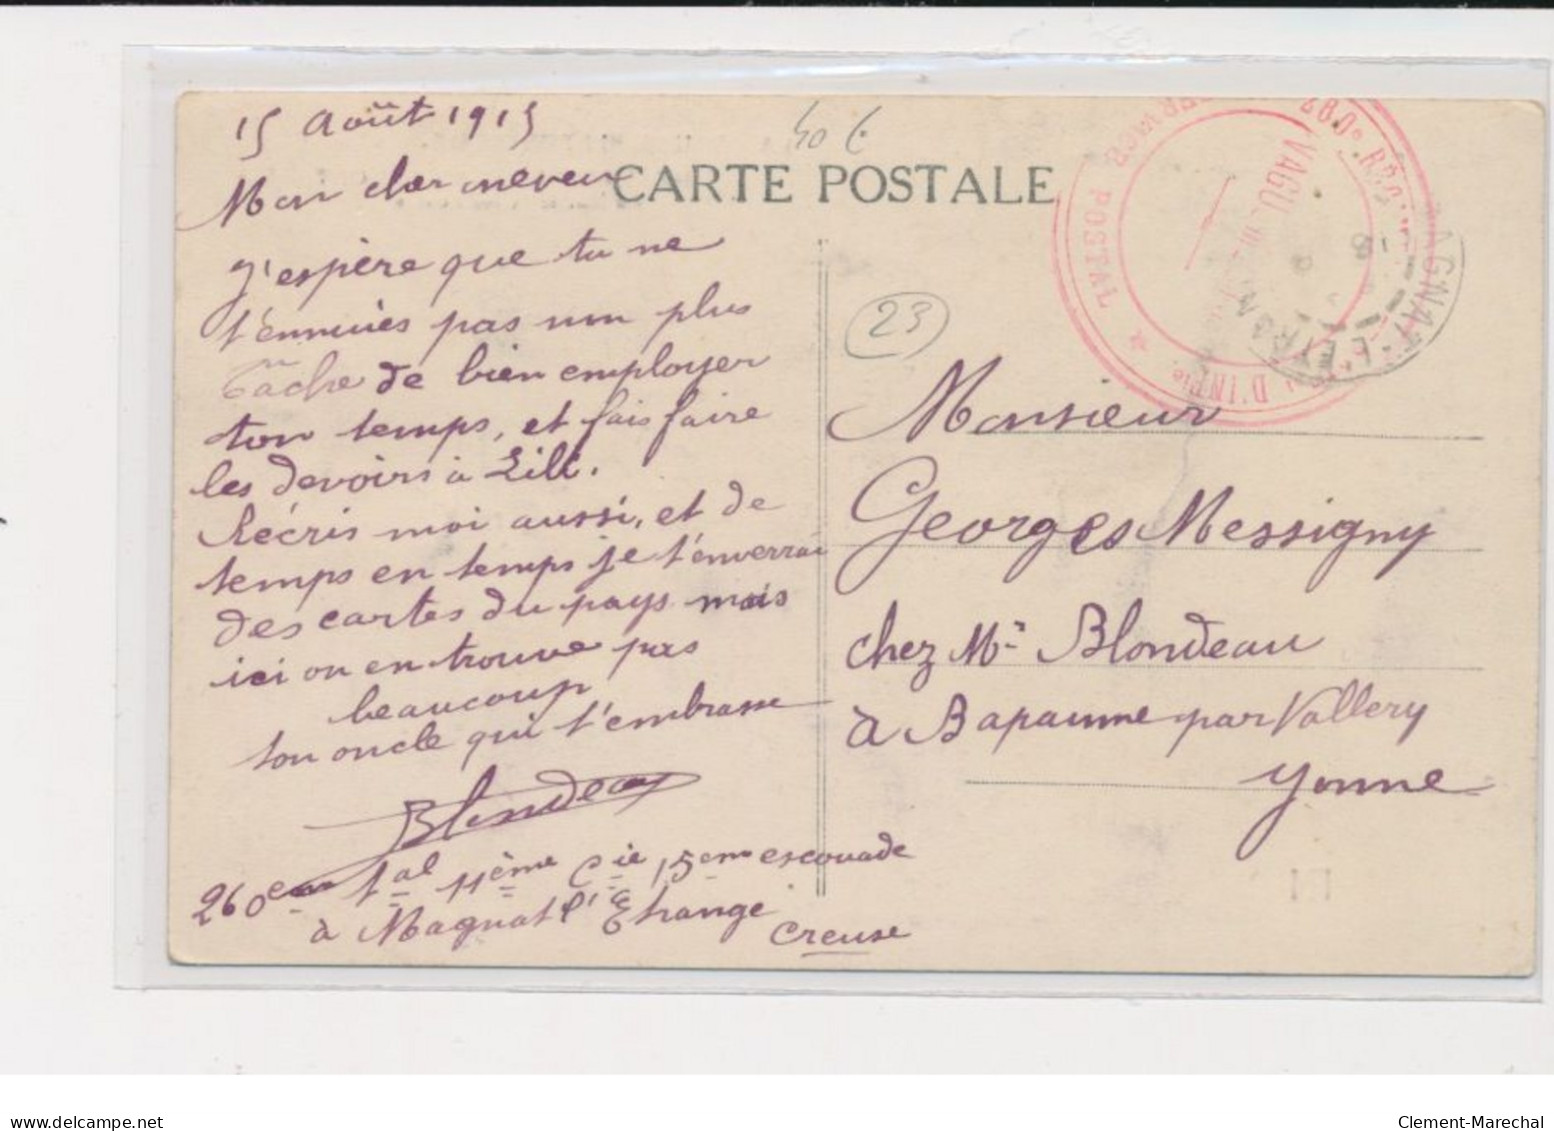 15 Août 1915
Mon cher neveu
J'espère que tu ne
t'ennuies pas non plus
Tâche de bien employer
ton temps, et fais faire
les devoirs à Lili.
Récris moi aussi, et de
temps en temps je t'enverrai
des cartes du pays mais
ici on en trouve pas
beaucoup
ton oncle qui t'embrasse
Blondeau
260em 11ème Cie 15em escouade
à Magnat l'Etrange
Creuse
40 €
CARTE POSTALE
23
Monsieur
Georges Messigny
chez Mr Blondeau
à Bapaume par Vallery
Yonne
POSTAL
VAGU
D'INFie
AGNAT-L'ETRAN
www.delcampe.net
Clement-Marechal